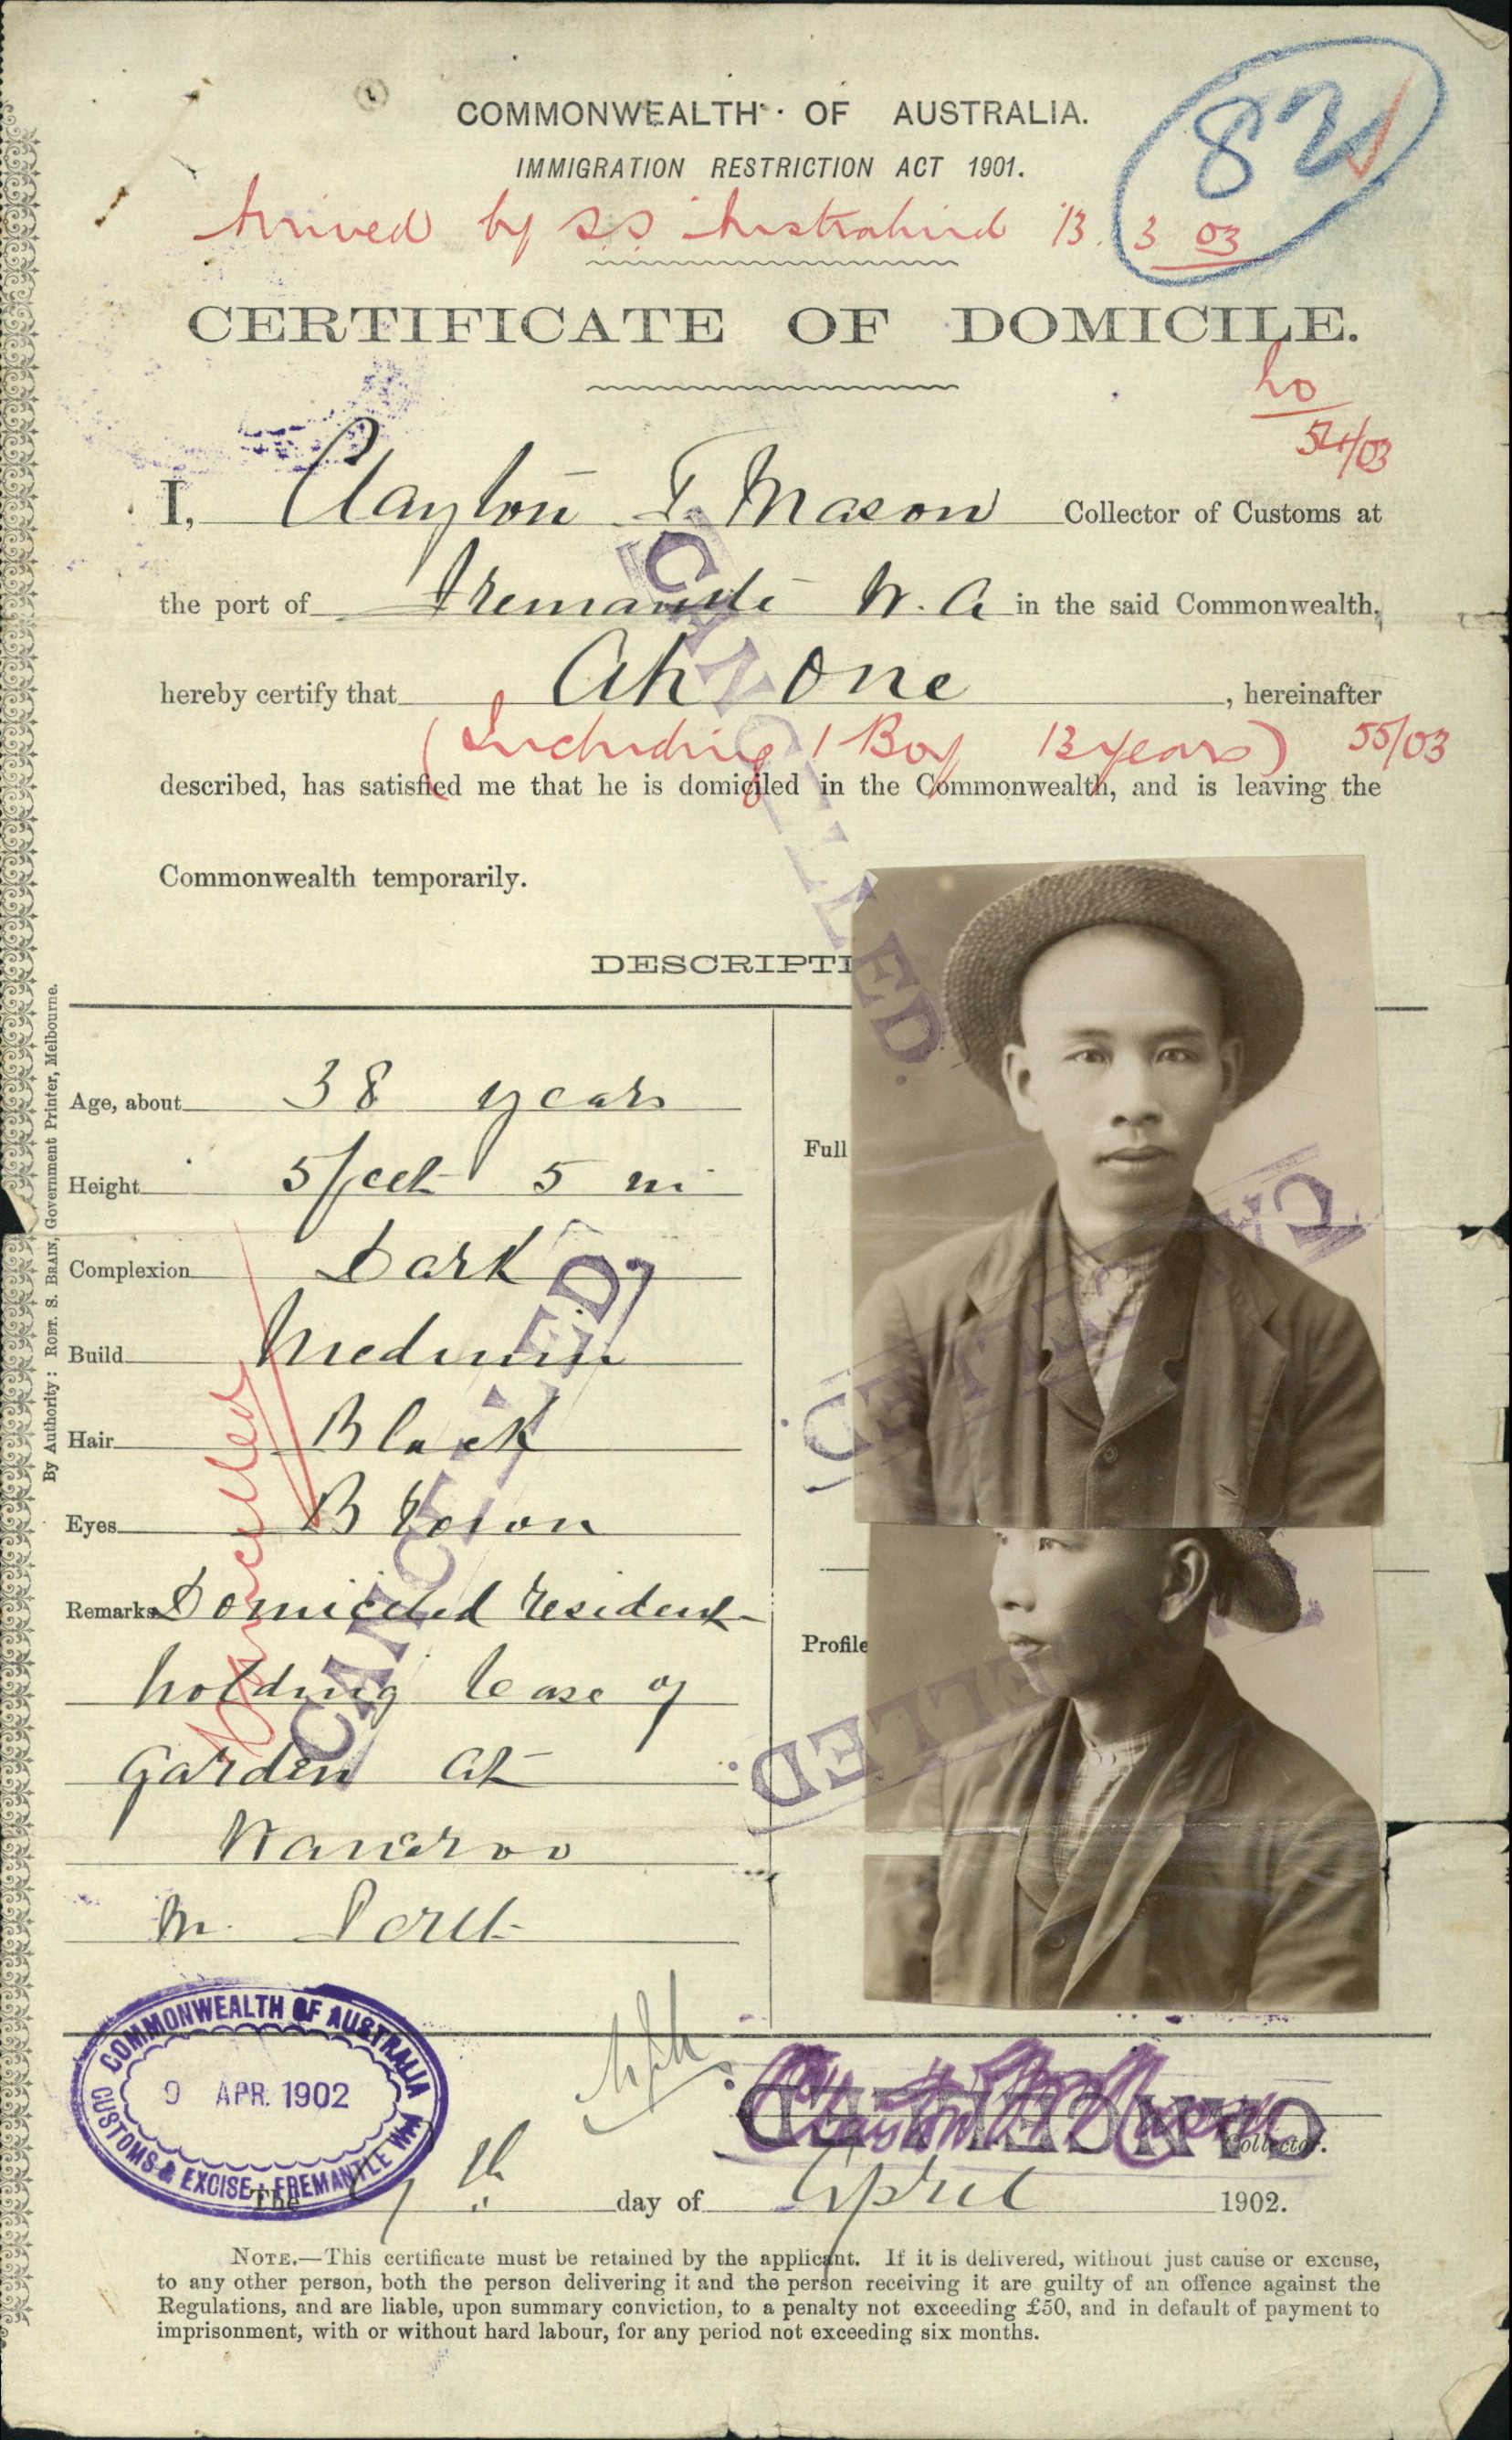 82
COMMONWEALTH OF AUSTRALIA.
IMMIGRATION RESTRICTION ACT 1901.
Arrived by SS Australind 13. 3 03
CERTIFICATE OF DOMICILE.
No
54/03
I, Clayton T. Mason Collector of Customs at
the port of Fremantle W. A in the said Commonwealth,
hereby certify that Ah One, hereinafter
(Including 1 Boy 13 years) 55/03
described, has satisfied me that he is domiciled in the Commonwealth, and is leaving the
Commonwealth temporarily.
CANCELLED.
DESCRIPTI
Age, about 38 years
Height 5 feet 5 in
Complexion Dark
Build Medium
Hair Black
Eyes Brown
Remarks Domiciled resident
holding lease of
Garden at
Wanneroo
Nr. Perth
Cancelled
CANCELLED.
Full
CANCELLED.
Profile
CANCELLED.
By Authority: ROBT. S. BRAIN, Government Printer, Melbourne.
COMMONWEALTH OF AUSTRALIA
9 APR. 1902
CUSTOMS & EXCISE FREMANTLE W.A.
Clayton T Mason
CANCELLED.
Collector.
The 9th day of April 1902.
NOTE.—This certificate must be retained by the applicant. If it is delivered, without just cause or excuse,
to any other person, both the person delivering it and the person receiving it are guilty of an offence against the
Regulations, and are liable, upon summary conviction, to a penalty not exceeding £50, and in default of payment to
imprisonment, with or without hard labour, for any period not exceeding six months.